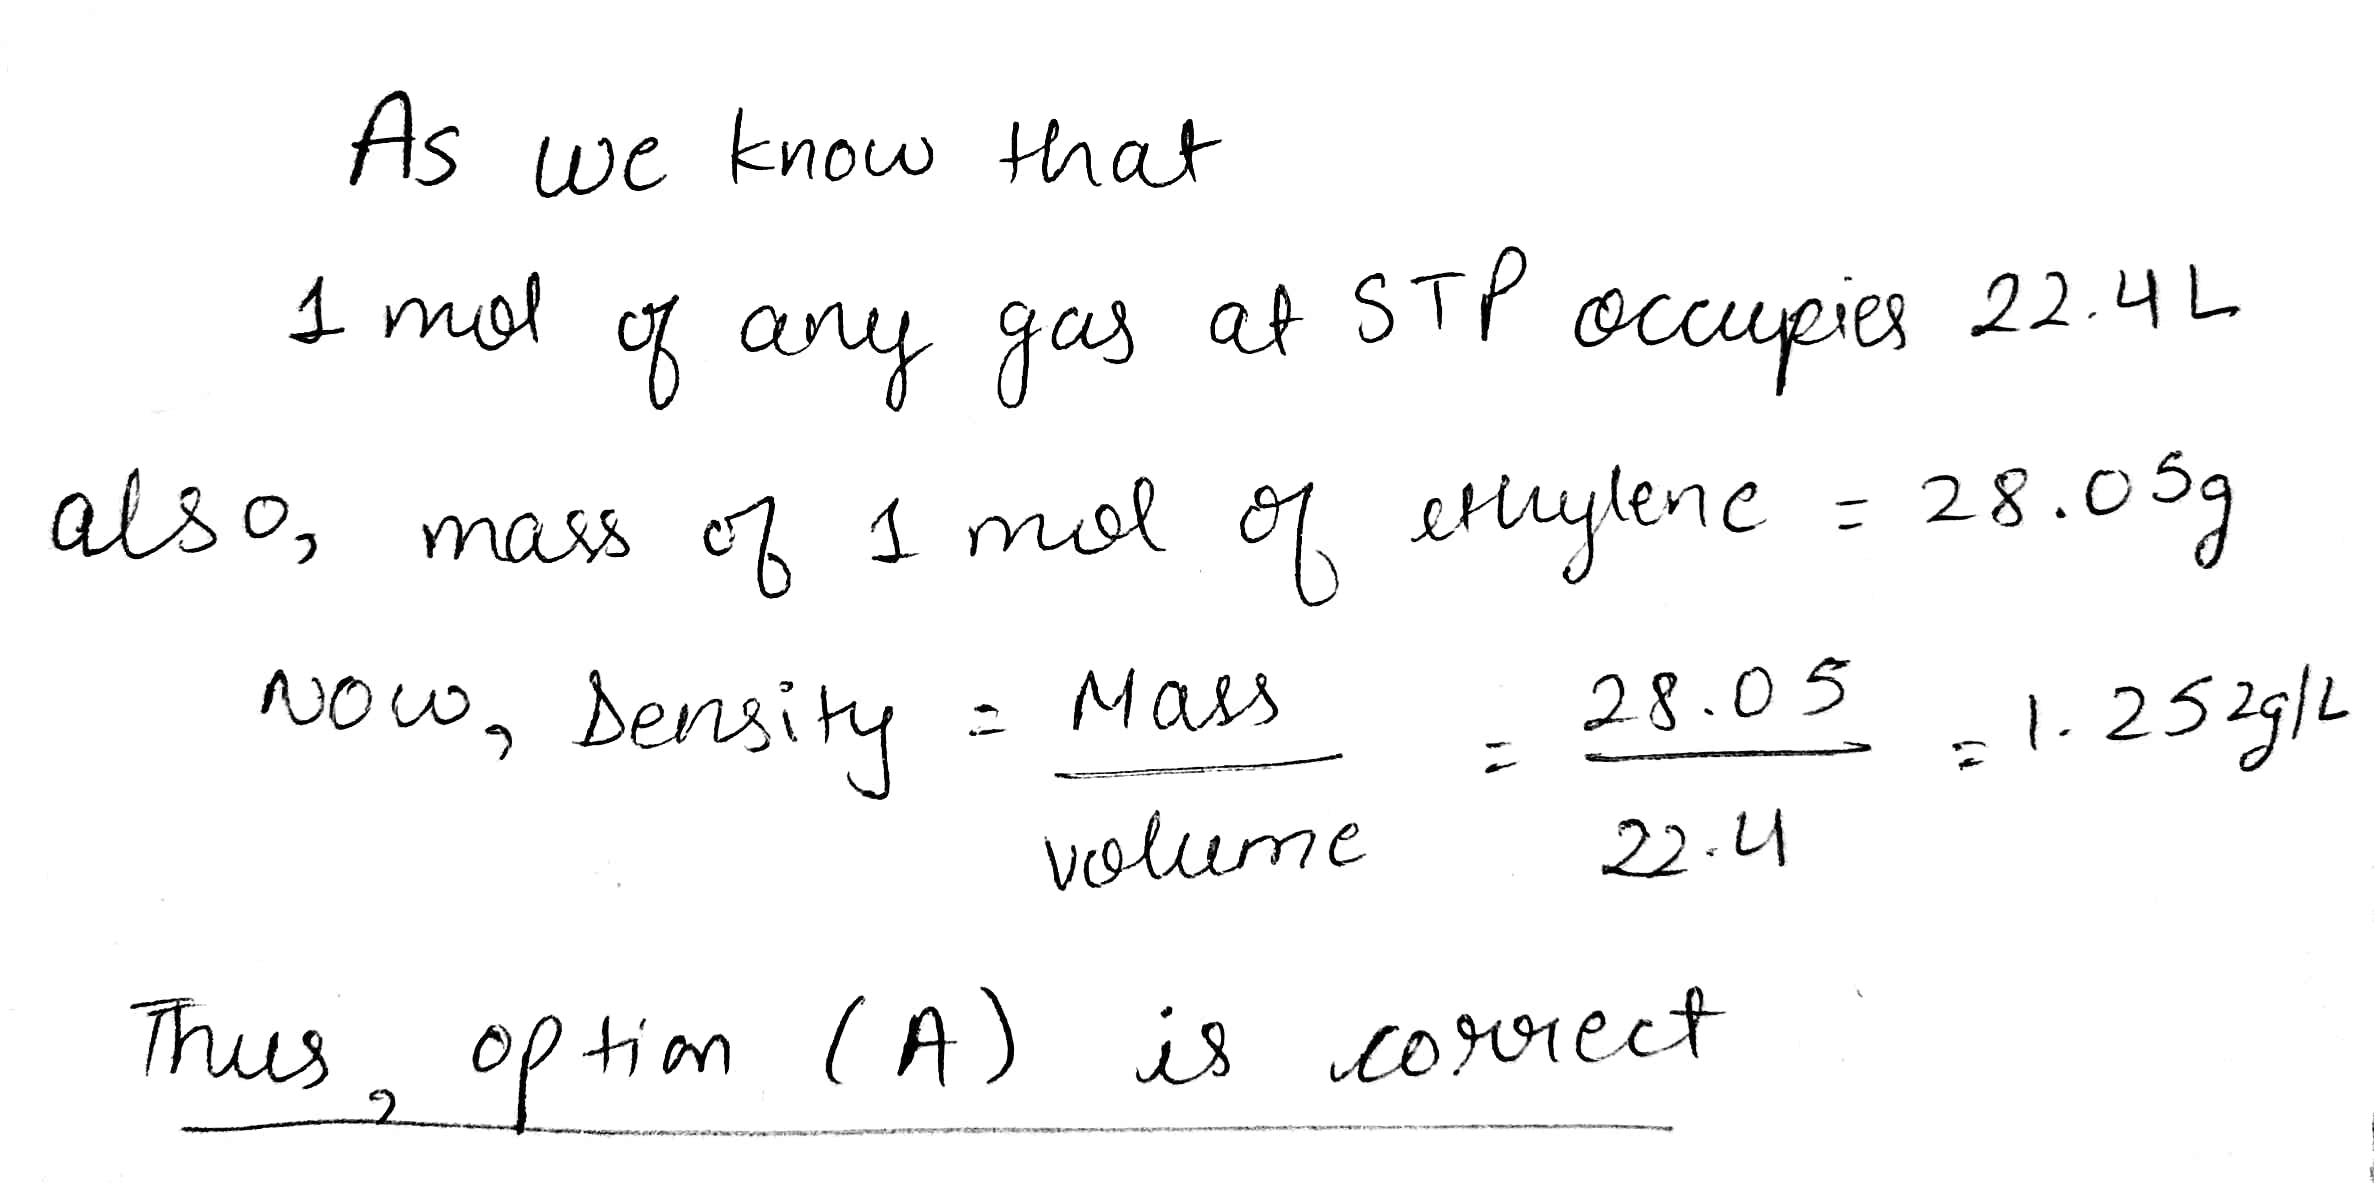 As we know that
1 mol of any gas at STP occupies 22.4L
also, mass of 1 mol of ethylene = 28.05g
Now, Density = Mass = 28.05 = 1.252g/L
volume 22.4
Thus, option (A) is correct